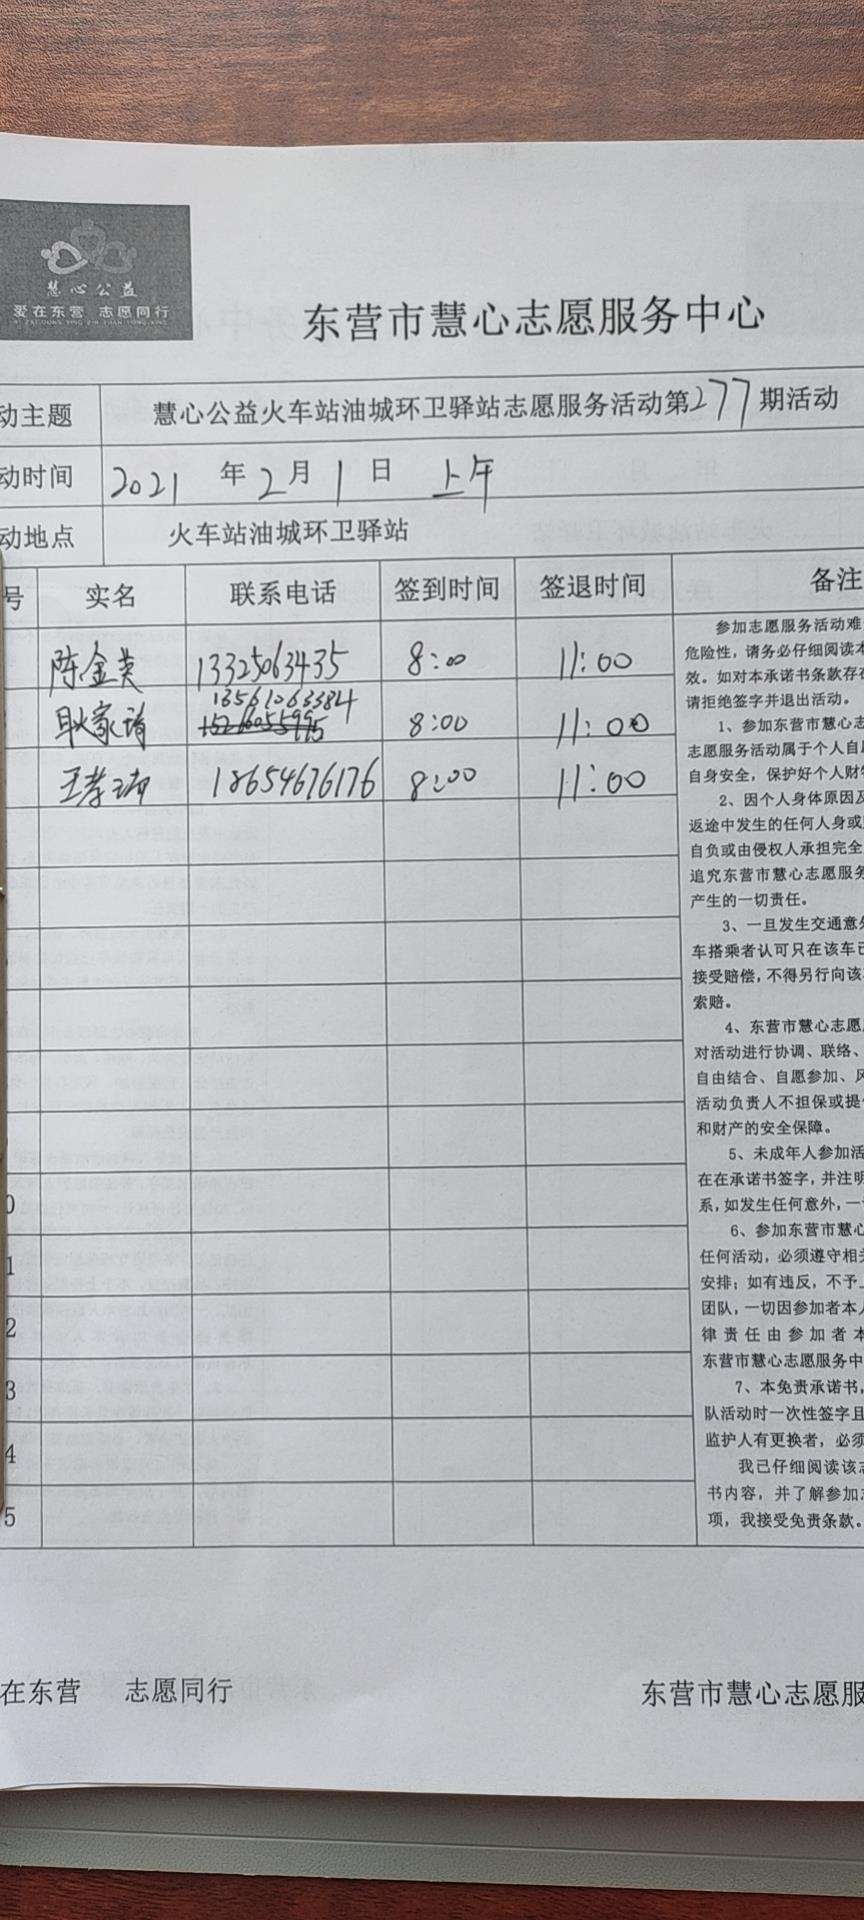 慧心公益
爱在东营 志愿同行
东营市慧心志愿服务中心
动主题 慧心公益火车站油城环卫驿站志愿服务活动第277期活动
动时间 2021 年 2 月 1 日 上午
动地点 火车站油城环卫驿站
号 实名 联系电话 签到时间 签退时间 备注
陈金英 13325063435 8:00 11:00
13561063384
耿家 8:00 11:00
王孝 18654676176 8:00 11:00
0
1
2
3
4
5
参加志愿服务活动难
危险性，请务必仔细阅读本
效。如对本承诺书条款存在
请拒绝签字并退出活动。
1、参加东营市慧心志
志愿服务活动属于个人自愿
自身安全，保护好个人财物
2、因个人身体原因及
返途中发生的任何人身或
自负或由侵权人承担完全
追究东营市慧心志愿服务
产生的一切责任。
3、一旦发生交通意外
车搭乘者认可只在该车已
接受赔偿，不得另行向该
索赔。
4、东营市慧心志愿
对活动进行协调、联络、
自由结合、自愿参加、风
活动负责人不担保或提供
和财产的安全保障。
5、未成年人参加活
在在承诺书签字，并注明
系，如发生任何意外，一
6、参加东营市慧心
任何活动，必须遵守相关
安排；如有违反，不予上
团队，一切因参加者本人
律责任由参加者本
东营市慧心志愿服务中
7、本免责承诺书，
队活动时一次性签字且
监护人有更换者，必须
我已仔细阅读该志
书内容，并了解参加志
项，我接受免责条款。
在东营 志愿同行
东营市慧心志愿服